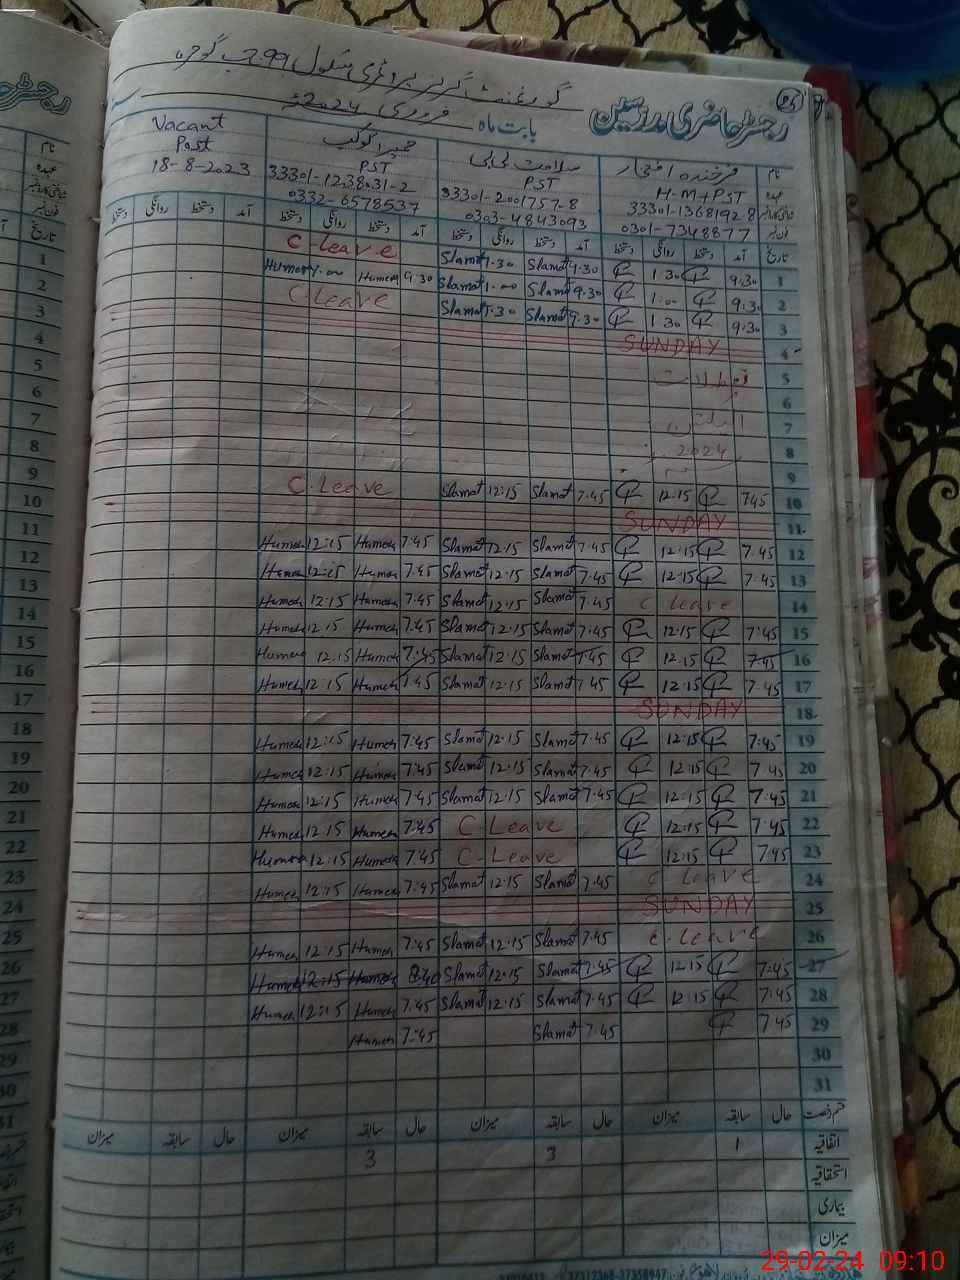 گورنمنٹ گرلز پرائمری سکول 99 ج ب گوجرہ
25
رجسٹر حاضری مدرسین
بابت ماہ فروری 2024ء
نام فرخندہ افتخار سلامت بی بی حمیرا کوکب Vacant
عہدہ H-M+PST PST PST Post
33301-1368192 8 33301-2001757-8 33301-1238031-2 18-8-2023
0301-7348877 0303-4843093 0332-6578537
تاریخ آمد دستخط روانگی دستخط آمد دستخط روانگی دستخط آمد دستخط روانگی دستخط آمد دستخط روانگی دستخط
1 9.30 1.30 9.30 Slamat 1.30 Slamat C-leave
2 9.30 1.00 9.30 Slamat 1.00 Slamat 9.30 Humera 1.00 Humera
3 9.30 1.30 9.30 Slamat 1.30 Slamat C Leave
4 SUNDAY
5 تعطیلات
6
7 الیکشن
8 2024
9
10 7.45 12.15 7.45 Slamat 12.15 Slamat C.Leave
11 SUNDAY
12 7.45 12.15 7.45 Slamat 12.15 Slamat 7.45 Humera 12:15 Humera
13 7.45 12.15 7.45 Slamat 12.15 Slamat 7.45 Humera 12:15 Humera
14 C leave 7.45 Slamat 12.15 Slamat 7.45 Humera 12.15 Humera
15 7.45 12.15 7.45 Slamat 12.15 Slamat 7.45 Humera 12.15 Humera
16 7.45 12.15 7.45 Slamat 12.15 Slamat 7.45 Humera 12.15 Humera
17 7.45 12.15 7.45 Slamat 12.15 Slamat 7.45 Humera 12.15 Humera
18 SUNDAY
19 7.45 12.15 7.45 Slamat 12.15 Slamat 7.45 Humera 12.15 Humera
20 7.45 12.15 7.45 Slamat 12.15 Slamat 7.45 Humera 12.15 Humera
21 7.45 12.15 7.45 Slamat 12.15 Slamat 7.45 Humera 12.15 Humera
22 7.45 12.15 C Leave 7.45 Humera 12.15 Humera
23 7.45 12.15 C-Leave 7.45 Humera 12.15 Humera
24 C leave 7.45 Slamat 12.15 Slamat 7.45 Humera 12.15 Humera
25 SUNDAY
26 C-leave 7.45 Slamat 12.15 Slamat 7.45 Humera 12.15 Humera
27 7.45 12.15 7.45 Slamat 12.15 Slamat Humera 12.15 Humera
28 7.45 12.15 7.45 Slamat 12.15 Slamat 7.45 Humera 12.15 Humera
29 7.45 7.45 Slamat 7.45 Humera
30
31
قسم رخصت حال سابقہ میزان حال سابقہ میزان حال سابقہ میزان حال سابقہ میزان
اتفاقیہ 1 3 3
استحقاقیہ
بیماری
میزان
29-02-24 09:10